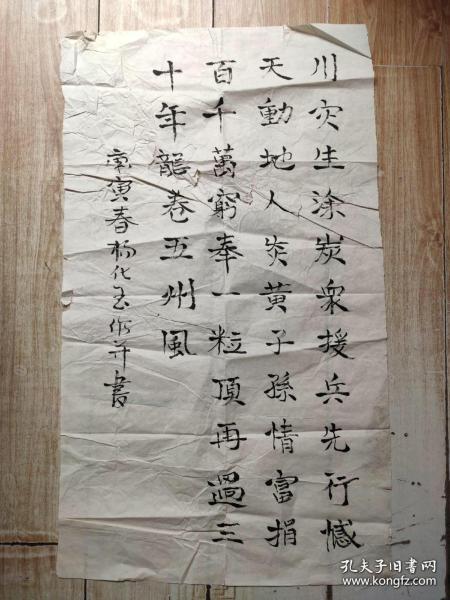 川灾生涂炭衆援兵先行憾
天動地人炎黄子孫情富捐
百千萬窮奉一粒頂再過三
十年龍卷五州風
寅春楊化玉作并書
孔夫子旧书网
www.kongfz.com